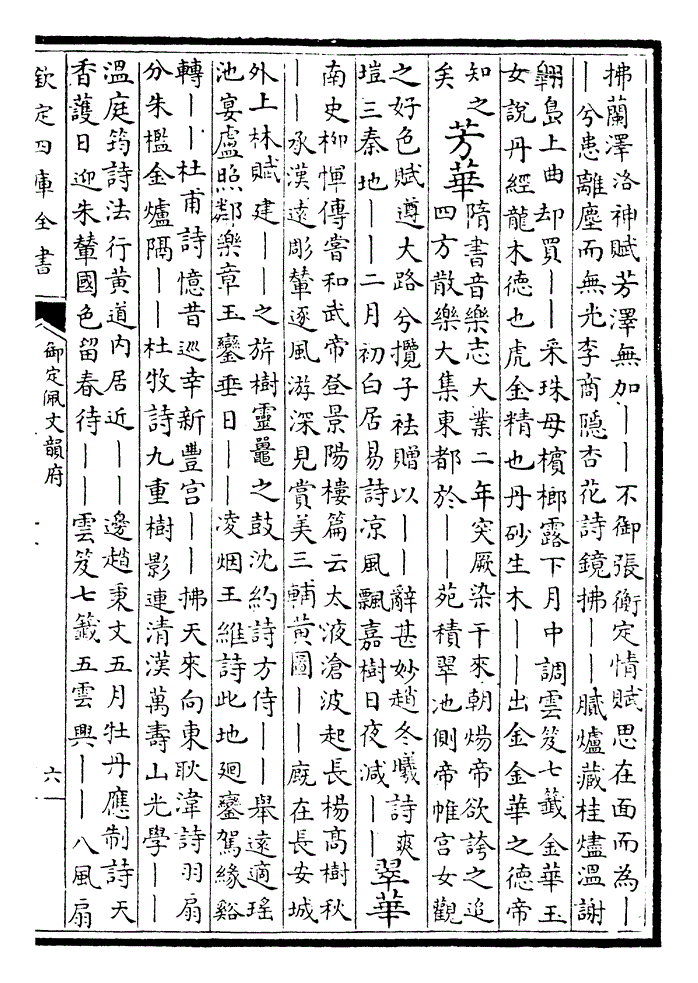 拂蘭澤洛神賦芳澤無加――不御張衡定情賦思在面而為―
―兮患離塵而無光李商隱杏花詩鏡拂――膩爐藏桂燼溫謝
翺島上曲却買――采珠母檳榔露下月中調雲笈七籤金華玉
女說丹經龍木德也虎金精也丹砂生木――出金金華之德帝
知之
矣
芳華
隋書音樂志大業二年突厥染干來朝煬帝欲誇之追
四方散樂大集東都於――苑積翠池側帝帷宮女觀
之好色賦遵大路兮攬子袪贈以――辭甚妙趙冬曦詩爽
塏三秦地――二月初白居易詩凉風飄嘉樹日夜減――
翠華
南史柳惲傳嘗和武帝登景陽樓篇云太液滄波起長楊高樹秋
――承漢遠彫輦逐風游深見賞美三輔黃圖――廐在長安城
外上林賦建――之旂樹靈鼉之鼓沈約詩方侍――舉遠適瑤
池宴盧照鄰樂章玉鑾垂日――凌烟王維詩此地廻鑾駕緣谿
轉――杜甫詩憶昔巡幸新豐宮――拂天來向東耿湋詩羽扇
分朱檻金爐隔――杜牧詩九重樹影連清漢萬壽山光學――
溫庭筠詩法行黃道內居近――邊趙秉文五月牡丹應制詩天
香護日迎朱輦國色留春待――雲笈七籤五雲興――八風扇
欽定四庫全書
御定佩文韻府
六